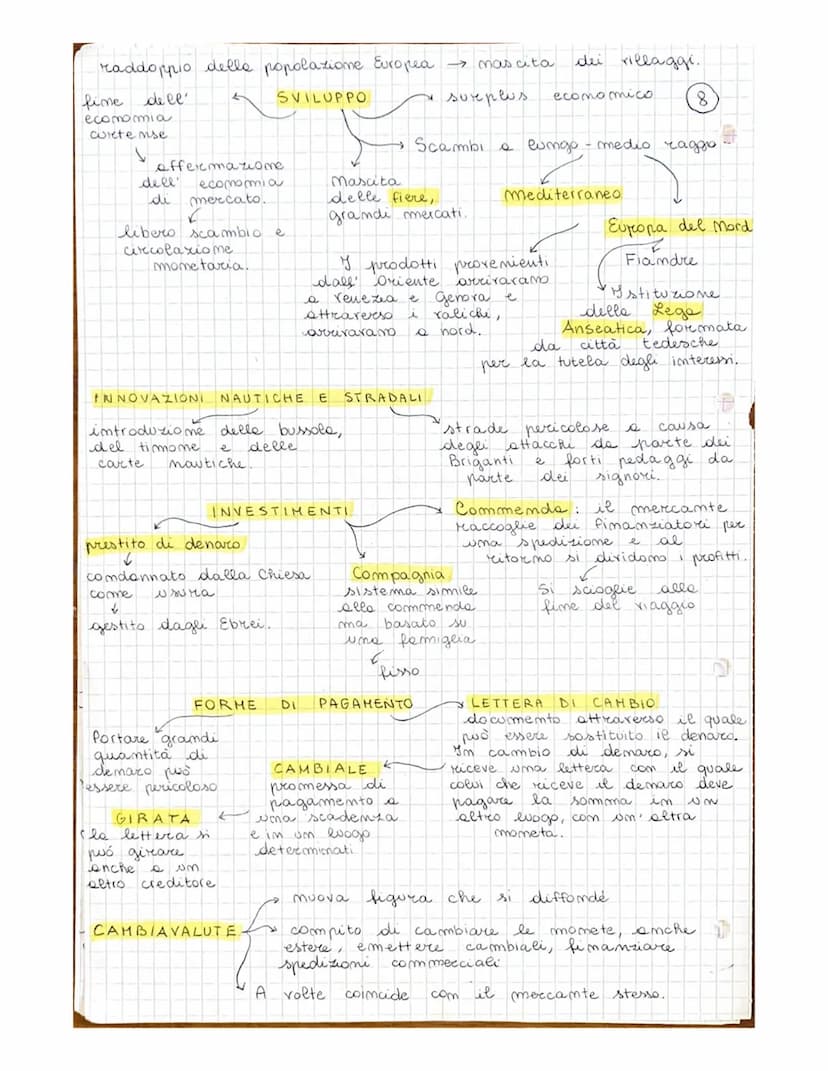 raddoppio della popolazione Europea → nascita dei villaggi.
8
SVILUPPO
fine dell'
economia
curtense
affermazione
dell' economia
di mercato.
libero scambio e
circolazione
monetaria.
surplus economico
Scambi a lungo-medio raggio
nascita
delle fiere,
grandi mercati.
Mediterraneo
I prodotti provenienti
dall' Oriente arrivavano
a Venezia e Genova e
attraverso i valichi,
arrivavano a nord.
Europa del Nord
Fiandre
Istituzione
della Lega
Anseatica, formata
da città tedesche
per la tutela degli interessi.
INNOVAZIONI NAUTICHE E STRADALI
introduzione della bussola,
del timone e delle
carte nautiche.
strade pericolose a causa
degli attacchi da parte dei
Briganti e forti pedaggi da
parte dei signori.
INVESTIMENTI
prestito di denaro
condannato dalla Chiesa
come usura
gestito dagli Ebrei.
Compagnia
sistema simile
alla commenda
ma basato su
una famiglia
fisso
Commenda: il mercante
raccoglie dei finanziatori per
una spedizione e al
ritorno si dividono i profitti.
Si scioglie alla
fine del viaggio
FORME DI PAGAMENTO
Portare grandi
quantità di
denaro può
essere pericoloso
LETTERA DI CAMBIO
documento attraverso il quale
può essere sostituito il denaro.
In cambio di denaro, si
riceve una lettera con il quale
colui che riceve il denaro deve
pagare la somma in un
altro luogo, con un'altra
moneta.
CAMBIALE
promessa di
pagamento a
una scadenza
e in un luogo
determinati
GIRATA
la lettera si
può girare
anche a un
altro creditore
CAMBIAVALUTE
nuova figura che si diffonde
compito di cambiare le monete, anche
estere, emettere cambiali, finanziare
spedizioni commerciali
A volte coincide con il mercante stesso.